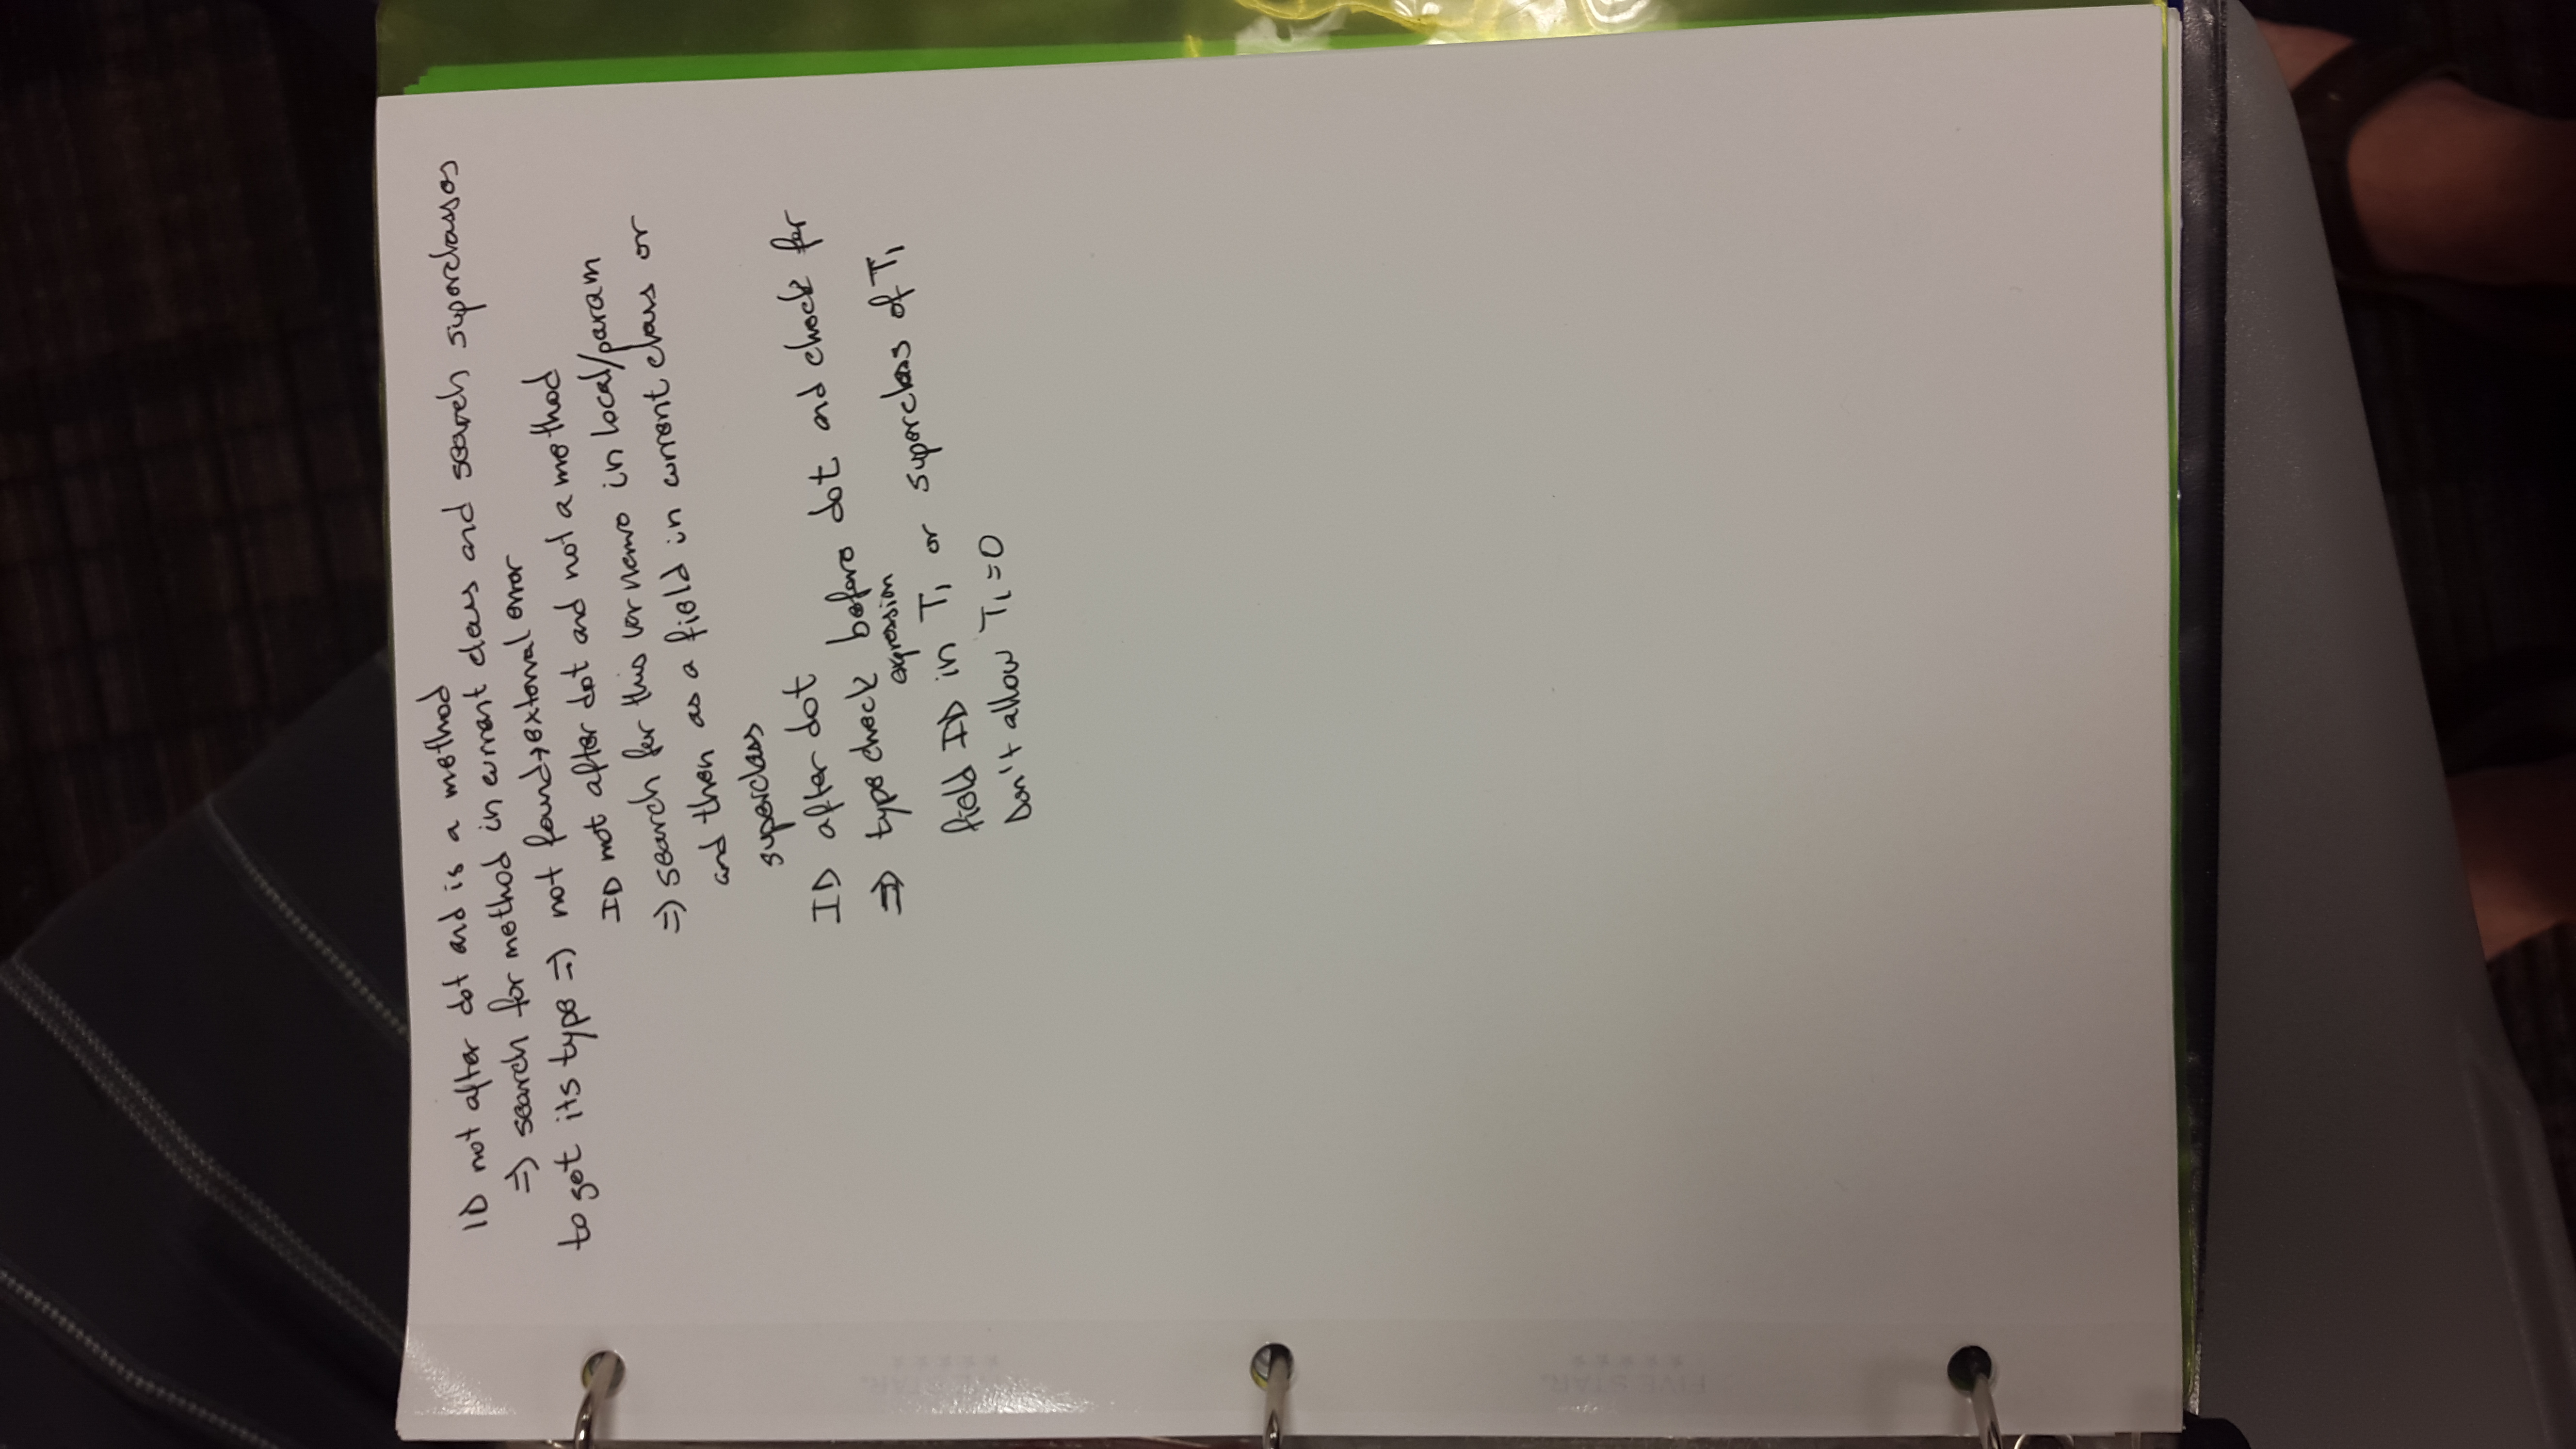 ID not after dot and is a method
=> search for method in current class and search superclasses
to get its type => not found → external error
ID not after dot and not a method
=> search for this var name in local/param
and then as a field in current class or
superclass
ID after dot
=> type check before dot and check for
expression
field ID in T₁ or superclass of T₁
Don't allow T₁=0
FIVE STAR.